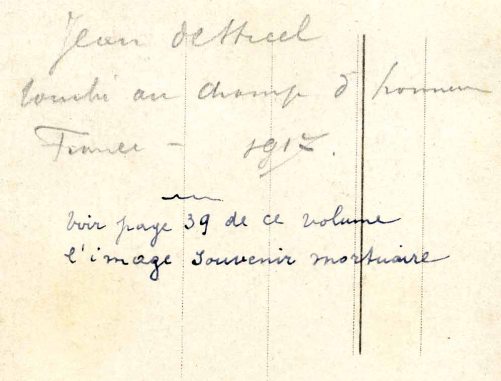 Jean
tombé au champ d'honneur
France - 1917.
Voir page 39 de ce volume
l'image souvenir mortuaire